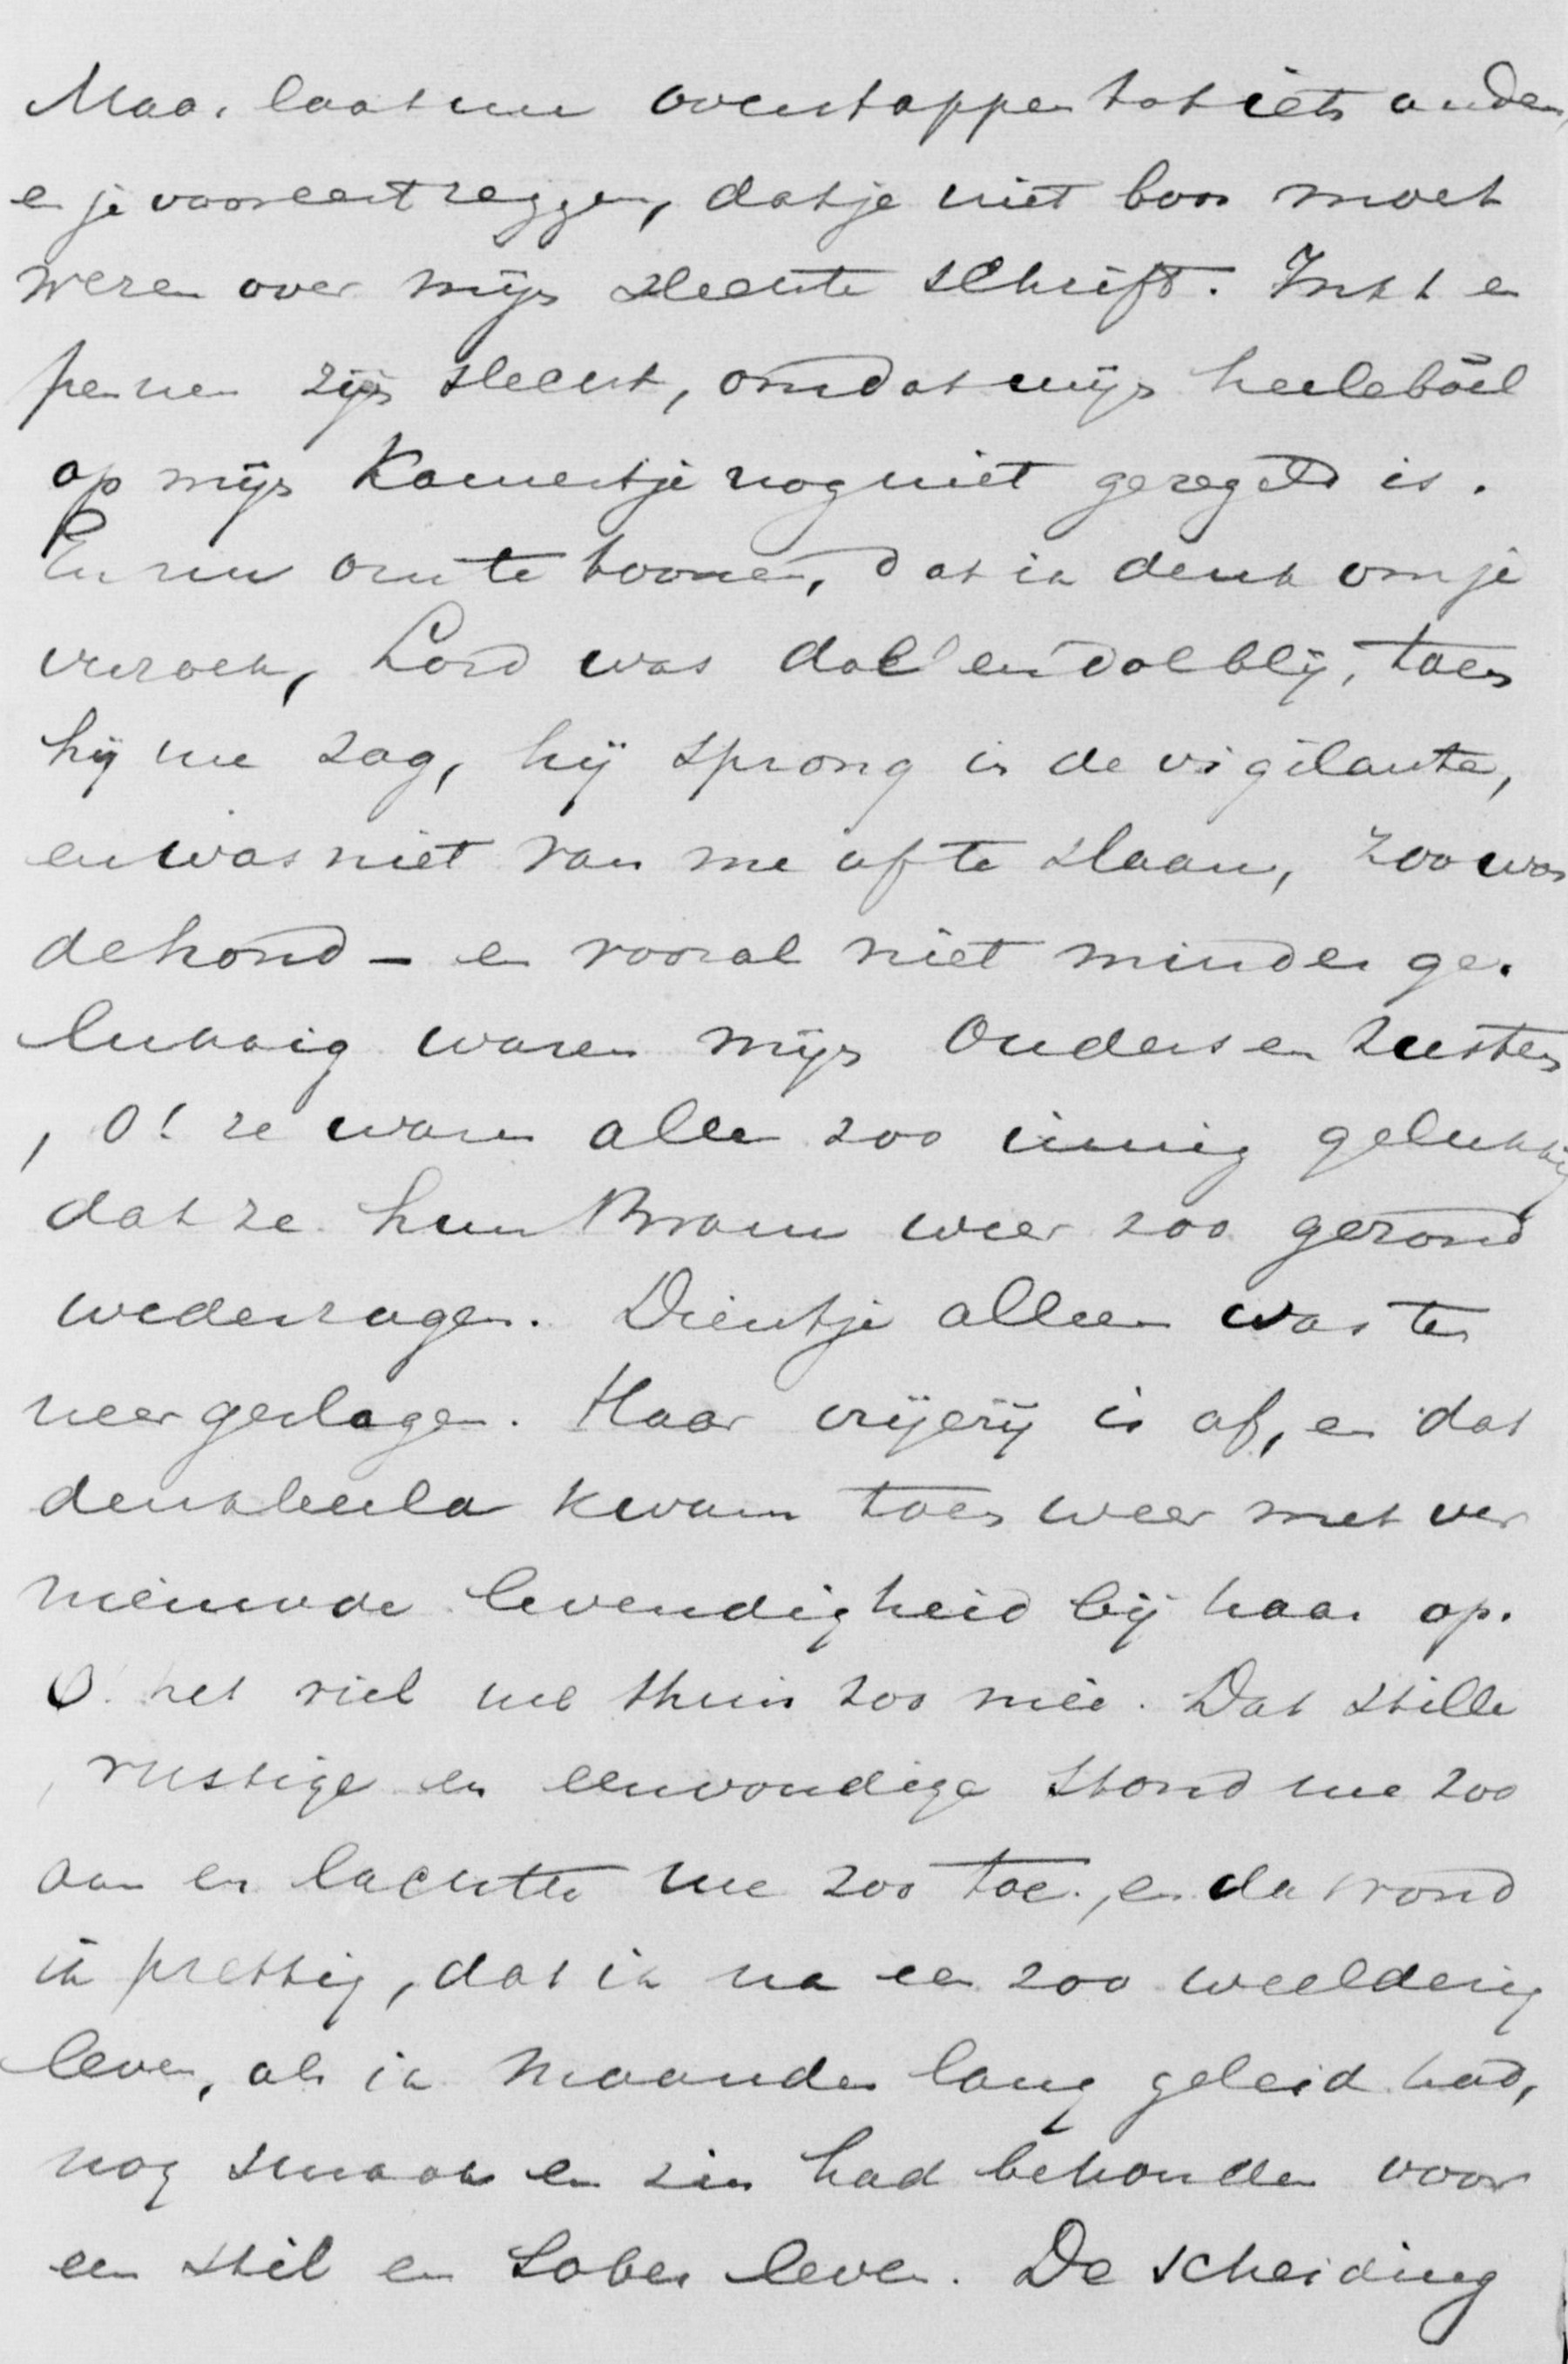 Maar laat me overstappen tot iets anders,
en je vooreerst zeggen, dat je niet boos moet
wezen over mijn slechte schrift. Inkt en
pennen zijn slecht, omdat mijn heeleboel
op mijn Kamertje nog niet geregeld is.
En nu om te toonen, dat ik denk om je
verzoek, Lord was dol en dol blij, toen
hij me zag, hij sprong in de vigilante,
en was niet van me af te slaan, zoo was
de hond – en vooral niet minder ge-
lukkig waren mijn Ouders en Zusters
, O! ze waren allen zoo innig gelukkig
dat ze hun Bram weer zoo gezond
wederzagen. Dientje alleen was ter
neergeslagen. Haar vrijerij is af, en dat
denkbeeld kwam toen weer met ver
nieuwde levendigheid bij haar op.
O! het viel me thuis zoo mee. Dat stille
, rustige en eenvoudige stond me zoo
aan en lachtte me zoo toe, en dat vond
ik prettig, dat ik na een zoo weelderig
leven, als ik Maanden lang geleid had,
nog smaak en zin had behouden voor
een stil en sober leven. De scheiding